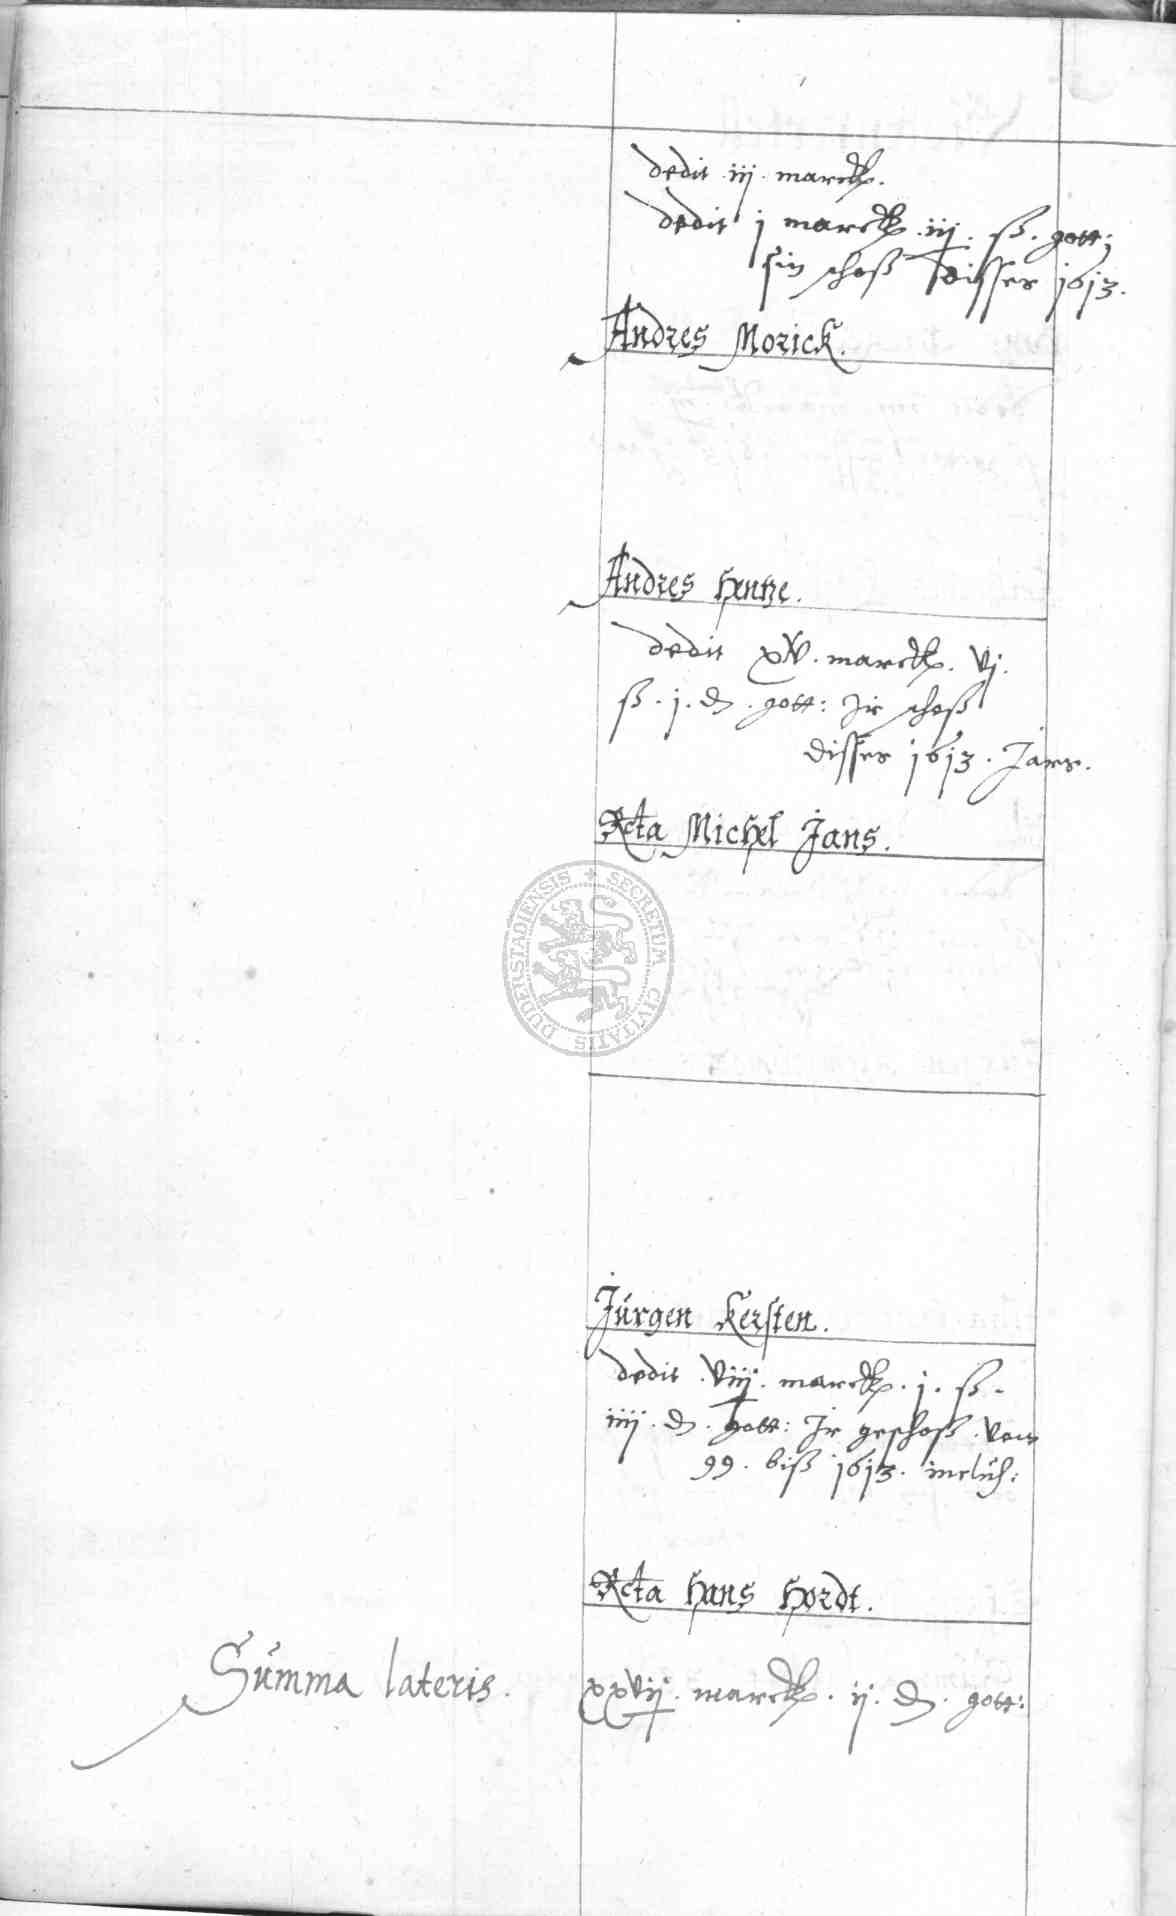 dedit .iij. marck.
dedit j marck .iij. ß. gott:
sin schoß disses 1613.
Andres Morick.
Andres Hentze.
dedit xv. marck. vj.
ß. j. d. gott: Ir schoß
disses 1613. Jars.
Rcta Michel Jans.
SECRETUM CIVITATIS DUDERSTADIENSIS
Jürgen Kersten.
dedit .viij. marck. j. ß.
iiij. d. gott: Ir geschoß. von
99. biß 1613. inclus:
Rcta Hans Hordt.
Summa lateris. xxvij. marck. ij. d. gott: